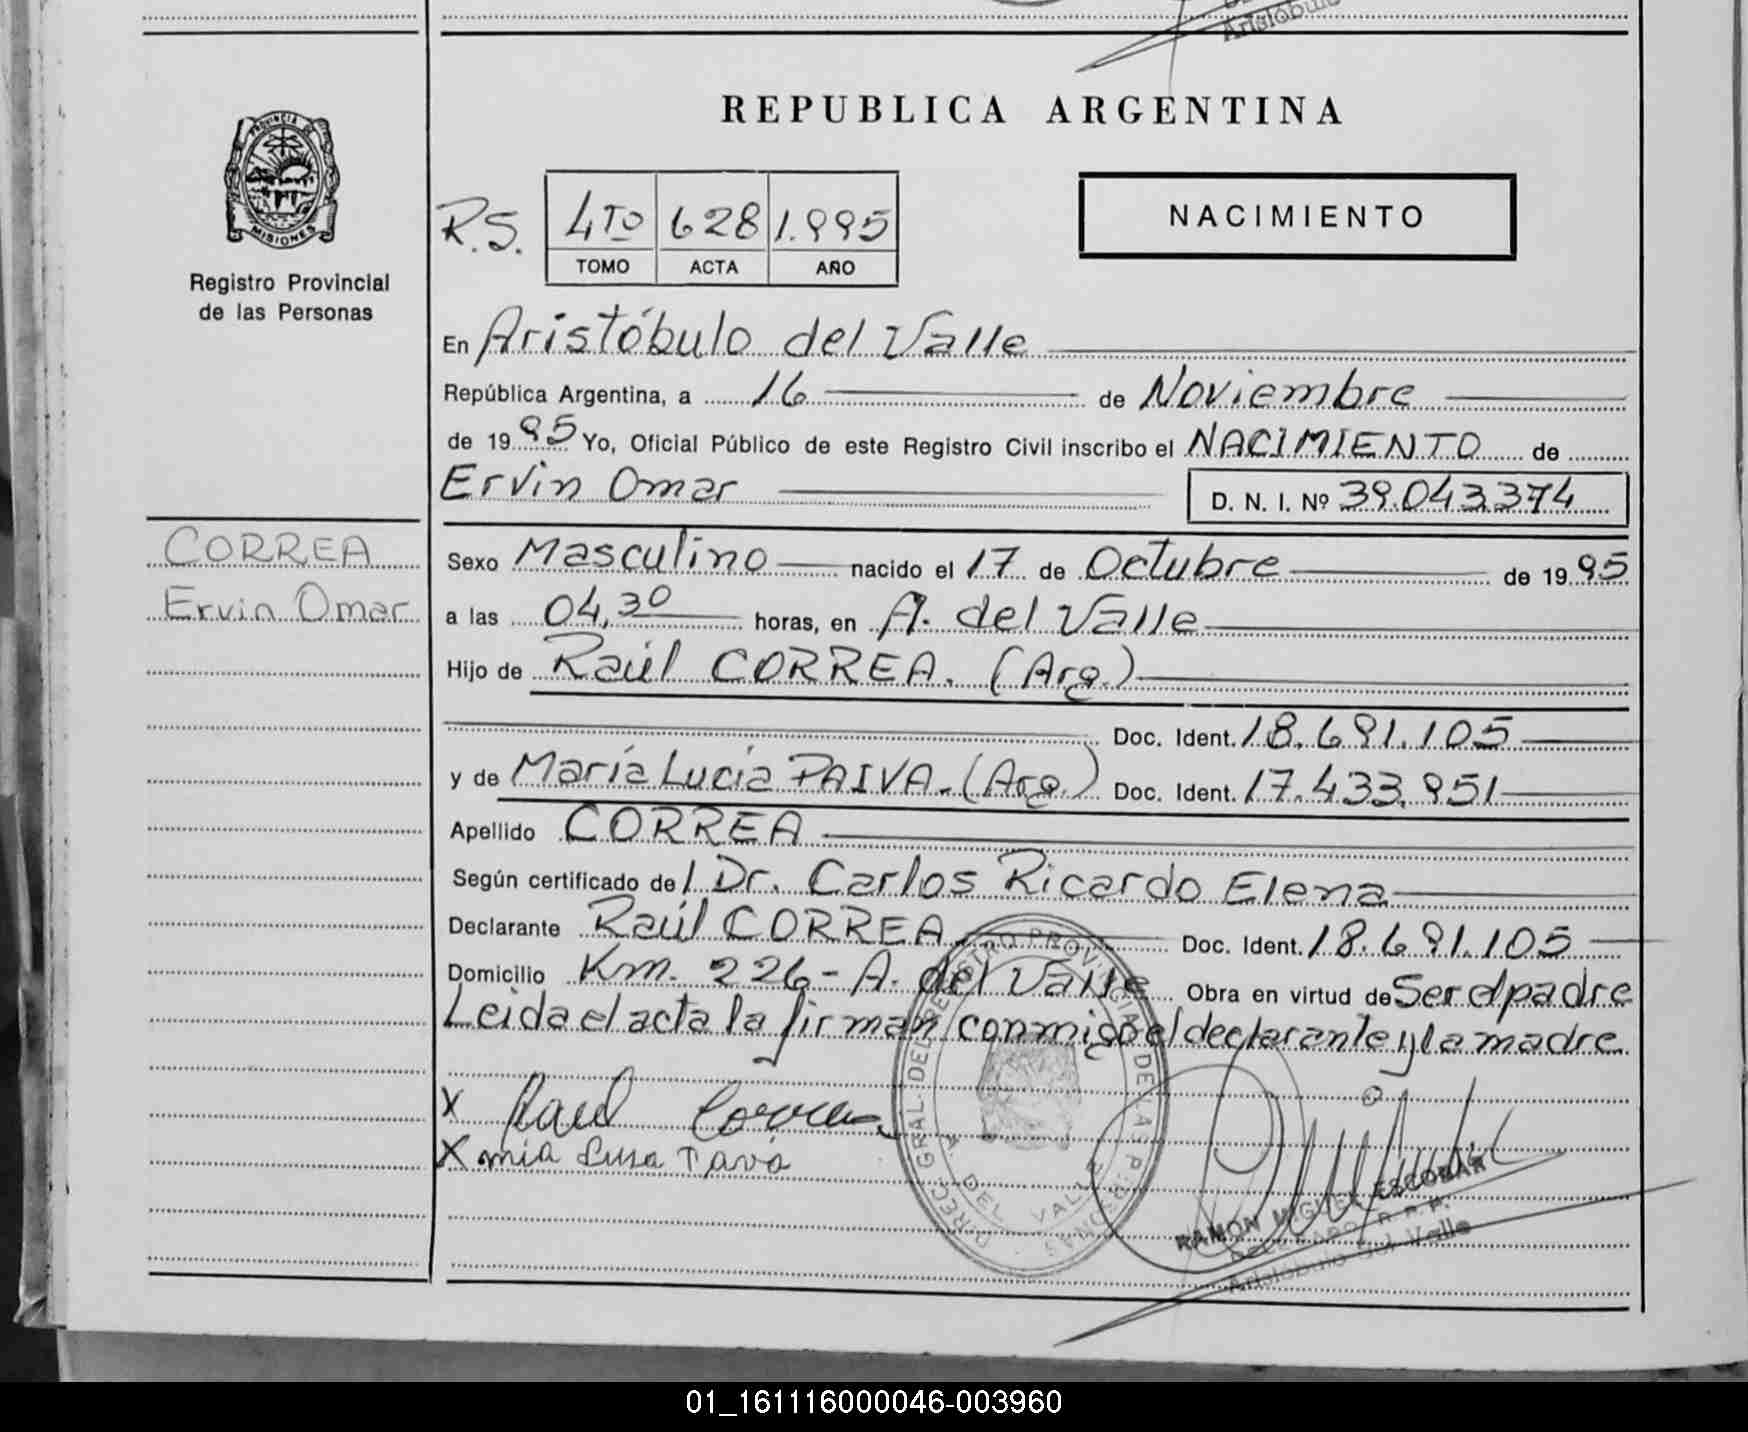 Aristóbulo
REPUBLICA ARGENTINA
PROVINCIA DE
MISIONES
Registro Provincial
de las Personas
R.S.
4TO 628 1.995
TOMO ACTA AÑO
NACIMIENTO
En Aristóbulo del Valle
República Argentina, a 16 de Noviembre
de 1995 Yo, Oficial Público de este Registro Civil inscribo el NACIMIENTO de
Ervin Omar D. N. I. Nº 39.043.374
CORREA
Ervin Omar
Sexo Masculino nacido el 17 de Octubre de 1995
a las 04,30 horas, en A. del Valle
Hijo de Raúl CORREA. (Arg.)
Doc. Ident. 18.691.105
y de María Lucia PAIVA. (Arg.) Doc. Ident. 17.433.951
Apellido CORREA
Según certificado del Dr. Carlos Ricardo Elena
Declarante Raúl CORREA Doc. Ident. 18.691.105
Domicilio Km. 226 - A. del Valle Obra en virtud de Ser el padre
Leida el acta la firman conmigo el declarante y la madre
X Raul Correa
X
DIREC. GRAL. DEL REGISTRO PROVINCIAL DE LAS PERSONAS
A. DEL VALLE
RAMON MIGUEL ESCOBAR
DELEGADO R.P.P.
Aristóbulo del Valle
01_161116000046-003960